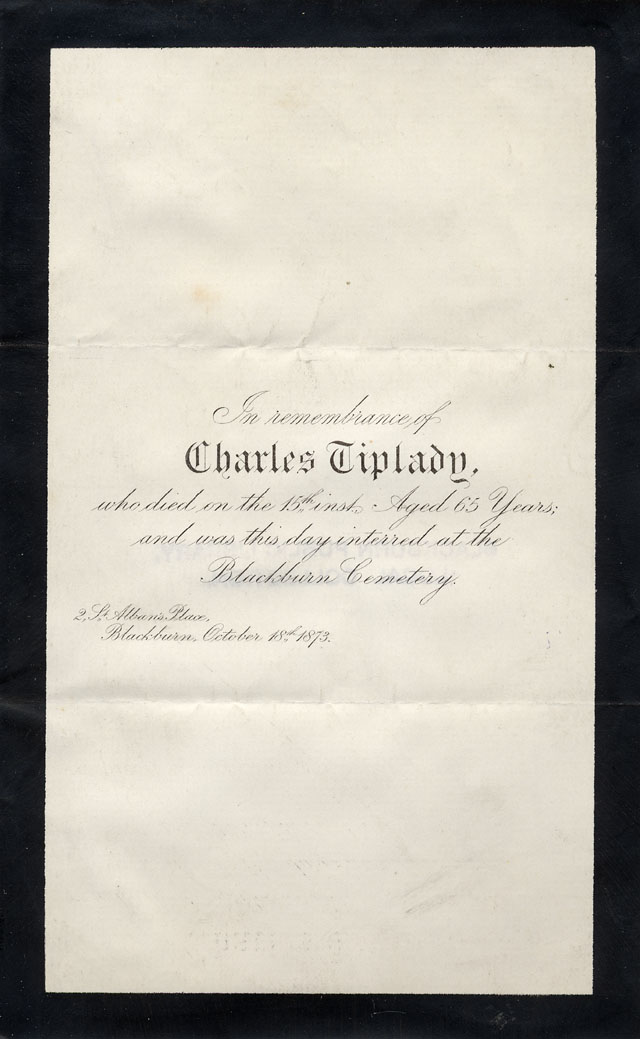 In remembrance of
Charles Tiplady,
who died on the 15th inst. Aged 65 Years;
and was this day interred at the
Blackburn Cemetery.
2, St Alban's Place,
Blackburn, October 18th 1873.